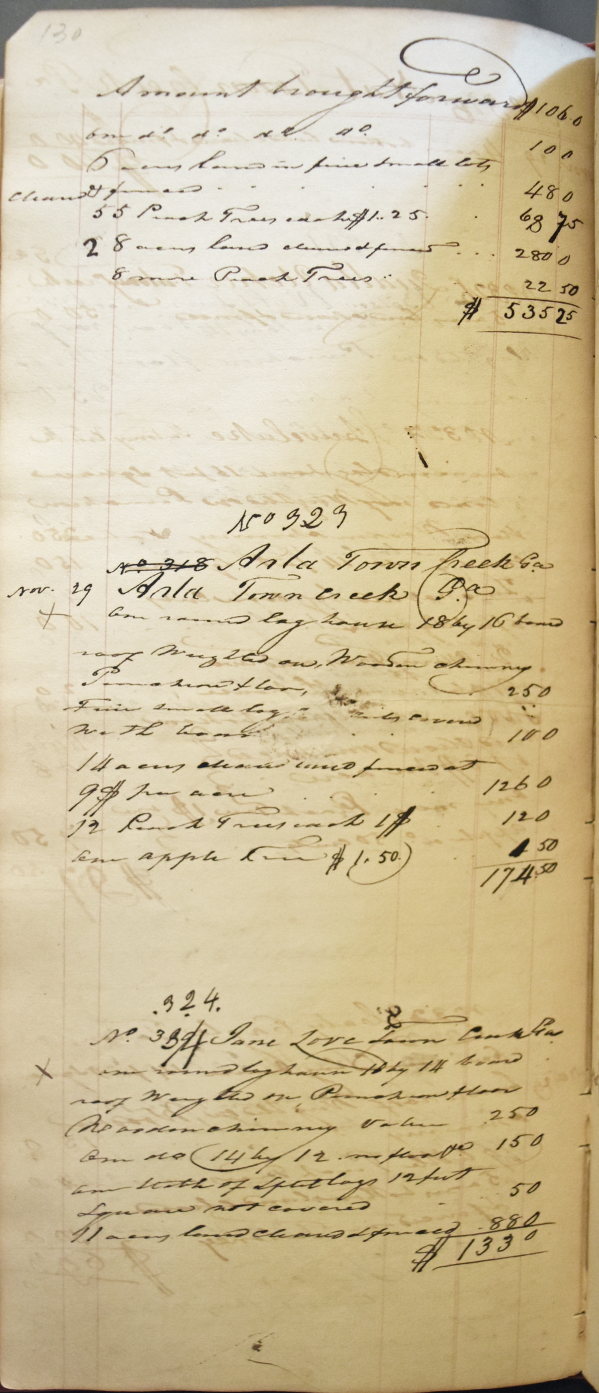 130
Amount brought forward $1060
One do do do do 100
6 acres land in five small lots
cleared & fenced . . . . 480
55 Peach Trees each $1.25 . . 68 75
28 acres land cleared & fenced . . . 2800
8 more Peach Trees 22 50
$ 53525
No 323
No 318 Arla Town Creek Ga
Nov. 29 Arla Town Creek Ga
X One round log house 18 by 16 board
roof Weighted on, Wooden chimney
Puncheon floor, 250
Five small log covered
with boards 100
14 acres cleared and fenced at
9$ per acre 1260
12 Peach Trees each 1$ . . 120
One apple Tree $1.50 1 50
174 50
324.
No Jane Love Town Creek Ga
X one round log house by 14 board
roof Weighted on Puncheon floor
Wooden chimney value 250
One do 14 by 12 no floor 150
one of split logs 12 feet
square not covered 50
11 acres land cleared & fenced 880
$ 1330